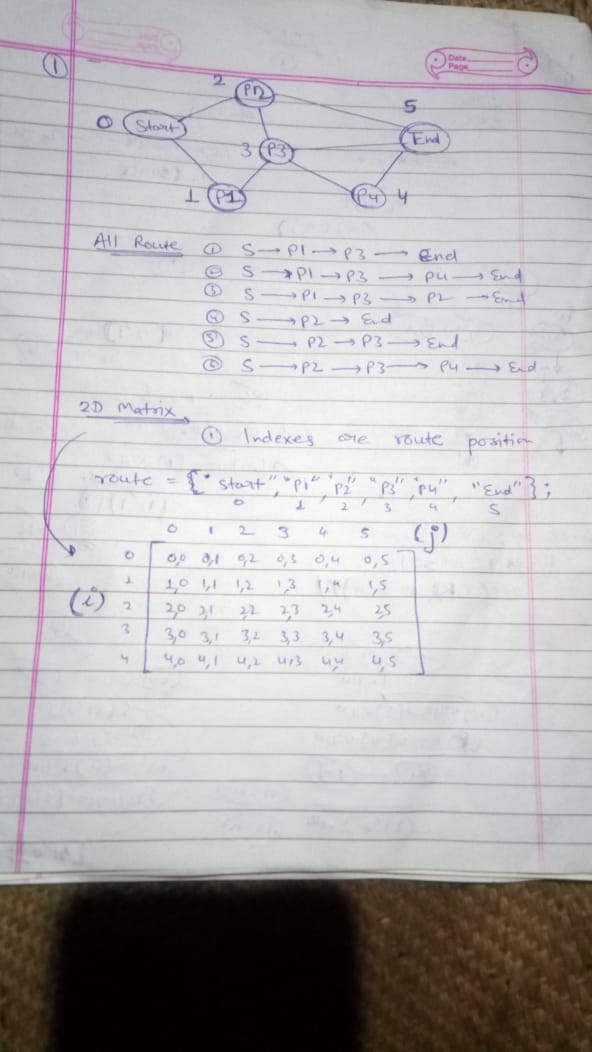 Date
Page
1
2
P2
5
0 Start
End
3 P3
1 P1
P4 4
All Route ① S → P1 → P3 → End
② S → P1 → P3 → P4 → End
③ S → P1 → P3 → P2 → End
④ S → P2 → End
⑤ S → P2 → P3 → End
⑥ S → P2 → P3 → P4 → End
2D Matrix
① Indexes are route position
route = {"Start", "P1" "P2", "P3", "P4", "End"};
0 1 2 3 4 5
0 1 2 3 4 5 (j)
0 0,0 0,1 0,2 0,3 0,4 0,5
1 1,0 1,1 1,2 1,3 1,4 1,5
(i) 2 2,0 2,1 2,2 2,3 2,4 25
3 3,0 3,1 3,2 3,3 3,4 3,5
4 4,0 4,1 4,2 4,3 4,4 4,5